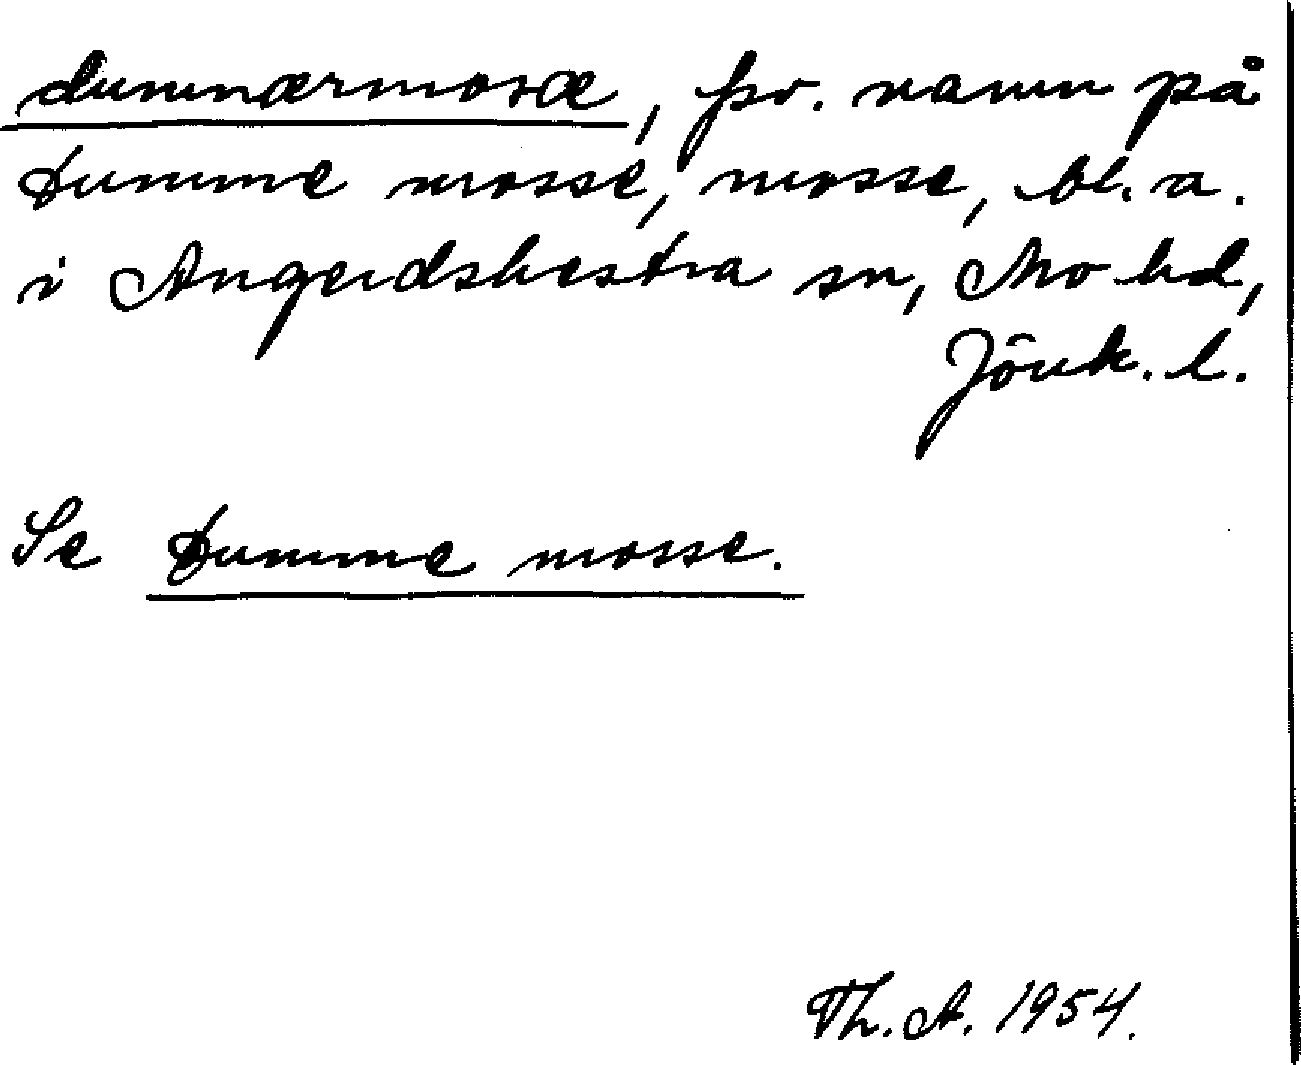 dummærmosæ, fsv. namn på
Dumme mosse, mosse, bl. a.
i Angerdshestra sn, Mo hd,
Jönk. l.
Se Dumme mosse.
Th. A. 1954.